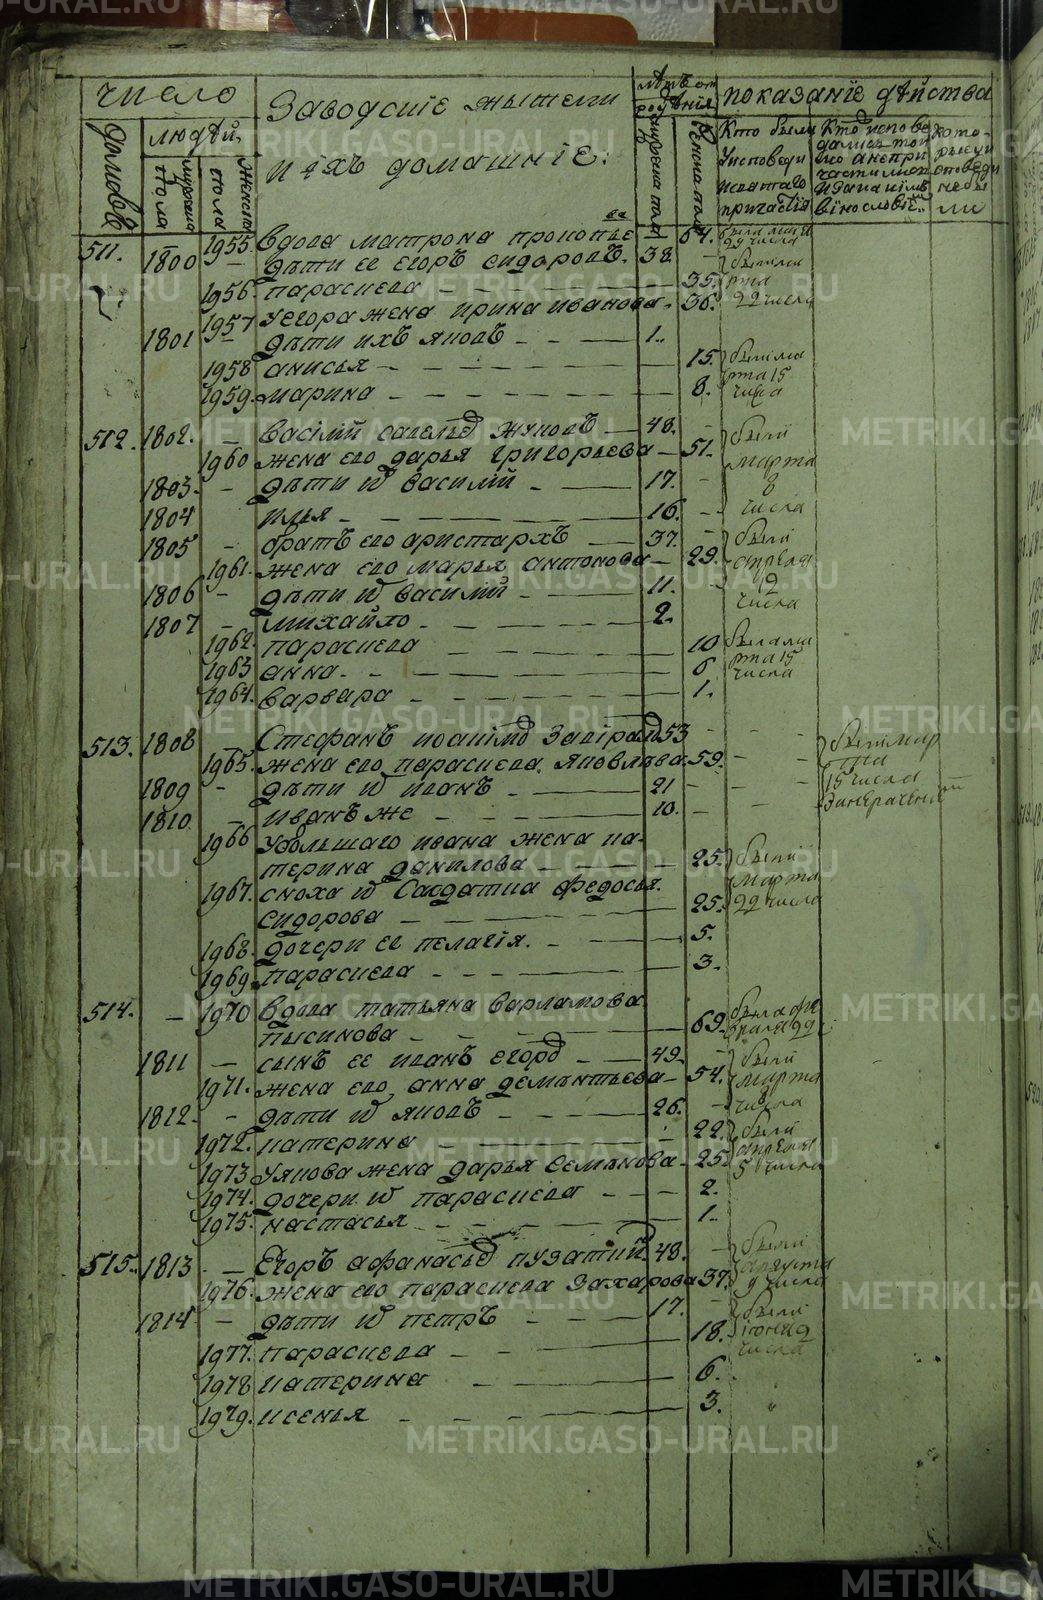 число
Заводскіе жытели
лѣтъ от рождѣнія
показаніе дѣйства
домовъ
людѣй
и ихъ домашніе:
мужеска пола
женска пола
мужеска пола
женска пола
Кто были у исповеди и святаго причастія
Кто исповедались токмо а непричастились и за какімъ вінословіемъ
которые у исповеди не были
511. 1955 вдова матрона прокопьева 64. была марта 22 числа
1800 — дѣти ее Егоръ сидоровъ. 38. были
1956. параскева 35. марта
1957 У егора жена ирина иванова. 36. 22 числа
1801 — дѣти ихъ яковъ 1.
1958 анисья 15. были ма
1959. марина 8. рта 15 числа
512. 1802. — васілій савельевъ жуковъ 48. были
1960 жена его дарья григорьева 51. марта
1803. — дѣти ѿ василій 17. 8
1804 илья 16. числа
1805 — братъ его аристархъ 37. были
1961. жена его марья антонова 29. апреля
1806 — дѣти ѿ василій 11. 12
1807 — михайло 2. числа
1962. параскева 10 была ма
1963 анна 6 рта 15
1964. варвара 1. числа
513. 1808 — Стефанъ иоакімовъ 53 были мар
1965. жена его параскева яковлева 59. та
1809 — дѣти ѿ иванъ 21 15 числа
1810 — иванъ же 10.
1966 У большаго ивана жена ка-
терина данилова 25. были
1967. сноха ѿ салдатка федосья марта
сидорова 25. 22 числа
1968. дочери ее пелагія. 5.
1969. параскева 3.
514. — 1970 вдова татьяна варламова
пысинова 69. была фе враля 22
1811 — сынъ ее иванъ егоровъ 49. были
1971. жена его анна дементьева 54. марта
1812. — дѣти ѿ яковъ 26. 8 числа
1972. катерина 22. были
1973 У якова жена дарья семенова 25. апреля 5 числа
1974. дочери ѿ параскева 2.
1975. настасья 1.
515. 1813 — Егоръ афанасьевъ пузатый 48. были
1976. жена его параскева захарова 37. августа 9 числа
1814 — дѣти ѿ петръ 17. были
1977. параскева 18. іюня 9
1978 катерина 6. числа
1979. ксенья 3. "
METRIKI.GASO-URAL.RU